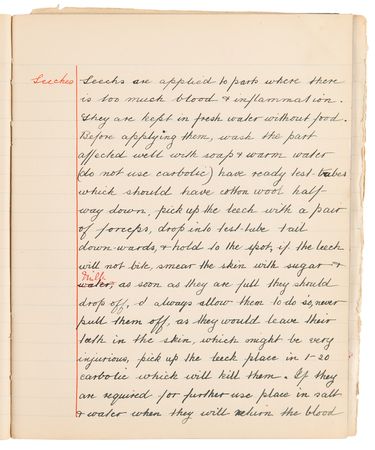 Leeches
Leechs are applied to parts where there
is too much blood & inflammation.
They are kept in fresh water without food.
Before applying them, wash the part
affected well with soap & warm water
(do not use carbolic) have ready test tubes
which should have cotton wool half
way down, pick up the leech with a pair
of forceps, drop into test-tube tail
down-wards, & hold to the spot, if the leech
will not bite, smear the skin with sugar &
Milk
water, as soon as they are full they should
drop off, & always allow them to do so, never
pull them off, as they would leave their
teeth in the skin, which might be very
injurious, pick up the leech place in 1-20
carbolic which will kill them. If they
are required for further use place in salt
& water when they will return the blood